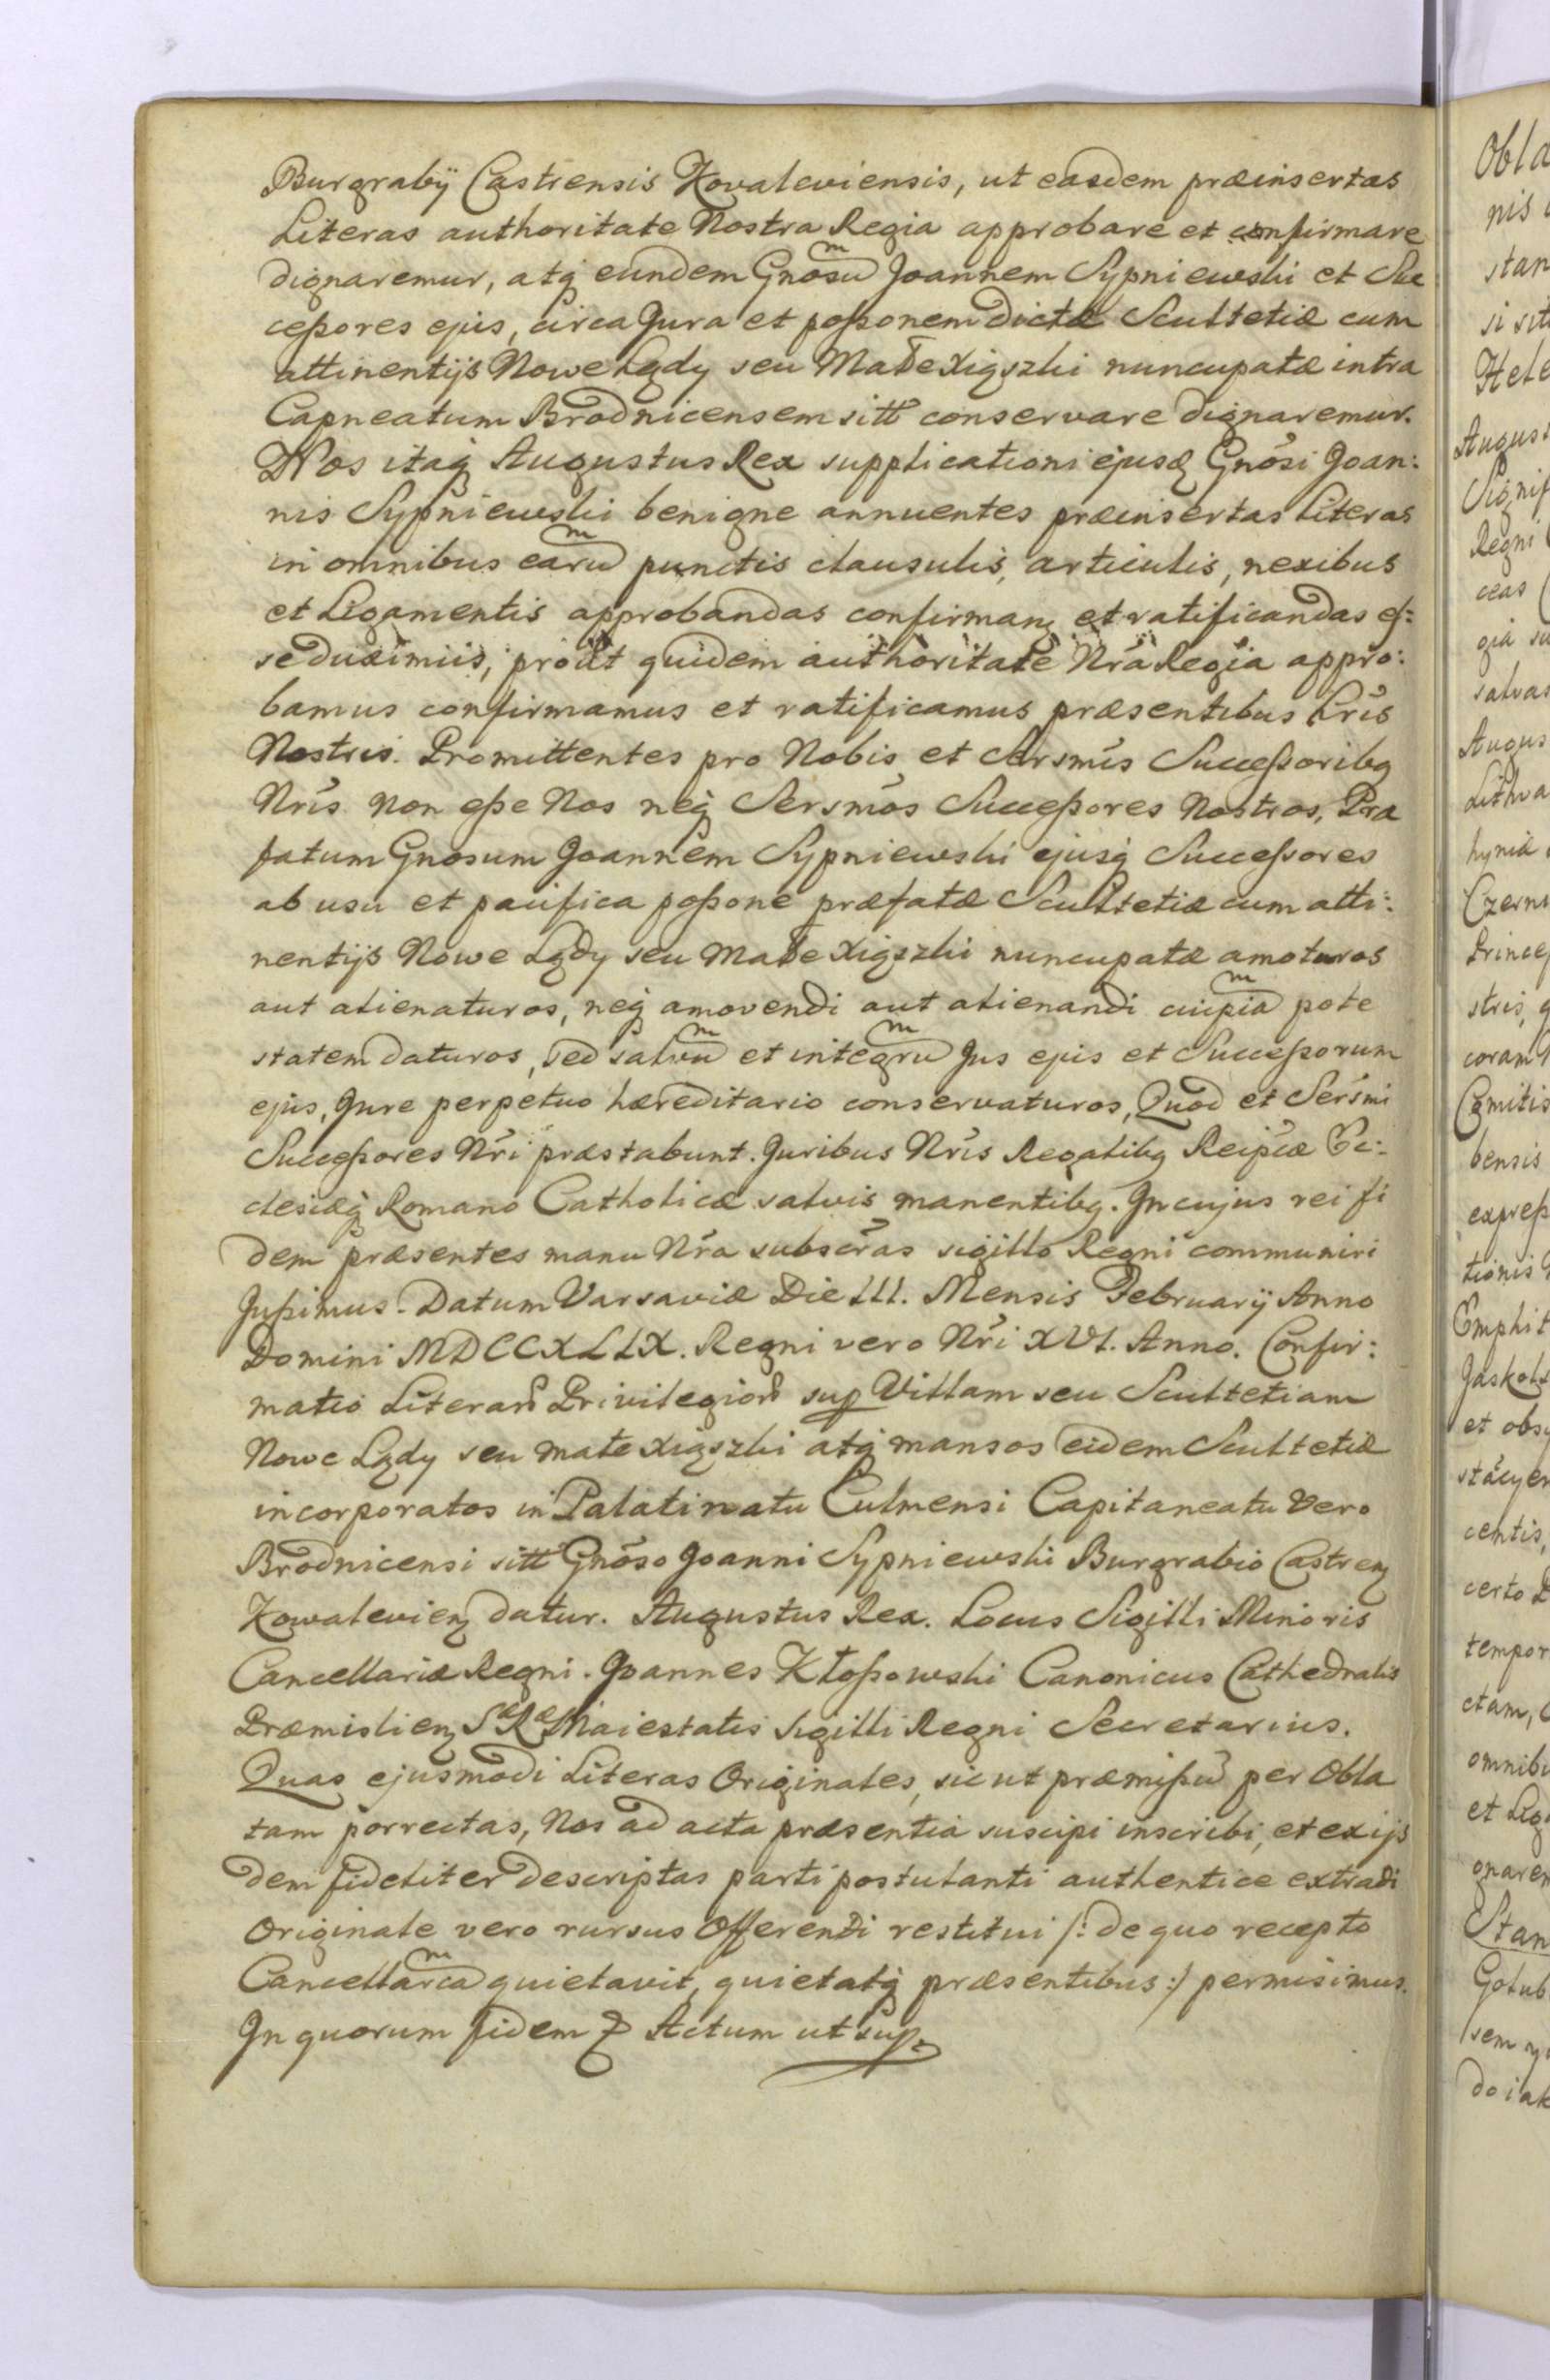 Burgrabÿ Castrensis Kovaleviensis, ut easdem præinsertas
Literas authoritate Nostra Regia approbare et confirmare
dignaremur, atq eundem Gnosum Joannem Sypniewski et Suc
ceßores ejus, circa Jura et poßonem dictæ Scultetiæ cum
attinentijs Nowe Lądy seu Małe Xiąszki nuncupatæ intra
Capneatum Brodnicensem sitt conservare dignaremur.
Nos itaq Augustus Rex supplicationi ejusd Gnosi Joan:
nis Sypniewski benigne annuentes præinsertas Literas
in omnibus earum punctis clausulis, articulis, nexibus
et Ligamentis approbandas confirmand et ratificandas es:
se duximus, prout quidem authoritate Nrã Regia appro:
bamus confirmamus et ratificamus præsentibus Lris
Nostris. Promittentes pro Nobis et Sersmis Succeßoribq
Nris non eße Nos neq Sersmos Succeßores Nostros, Præ
fatum Gnosum Joannem Sypniewski ejusq Succeßores
ab usu et pacifica poßone præfatæ Scultetiæ cum atti:
nentijs Nowe Lądy seu Małe Xiąszki nuncupatæ amoturos
aut alienaturos, neq amovendi aut alienandi cuipiam pote
statem daturos, sed salvum et integrum Jus ejus et Succeßorum
ejus, Jure perpetuo hæreditario conservaturos, Quod et Sersmi
Succeßores Nri præstabunt. Juribus Nris Regalibq Reipcæ Ec:
clesiæq Romano Catholicæ salvis manentibq. In cujus rei fi
dem præsentes manu Nra subscras sigillo Regni communiri
Jußimus. Datum Varsaviæ Die III. Mensis Februarij Anno
Domini MDCCXLIX. Regni vero Nri XVI. Anno. Confir:
matio Literar Privilegior sup Villam seu Scultetiam
Nowe Lądy seu małe Xiąszki atq mansos eidem Scultetiæ
incorporatos in Palatinatu Culmensi Capitaneatu vero
Brodnicensi sitt Gnoso Joanni Sypniewski Burgrabio Castren
Kowalevien datur. Augustus Rex. Locus Sigilli Minoris
Cancellariæ Regni. Joannes Kłoßowski Canonicus Cathedralis
Præmislien Sæ Ræ Maiestatis Sigilli Regni Secretarius.
Quas ejusmodi Literas Originales, sicut præmißum per Obla
tam porrectas, Nos ad acta præsentia suscipi inscribi, et ex ijs
dem fideliter descriptas parti postulanti authentice extradi
Originale vero rursus Offerenti restitui /: de quo recepto
Cancellarcam quietavit, quietatq præsentibus :/ permisimus.
In quorum fidem & Actum ut sup.
Obla
nis
stan
si sit
Hele
August
Signif
Regni
ceas
gia su
salvas
Augus
Lithva
hyniæ
Czerni
Princep
stris, q
coram
Comitis
bensis
expreß
tionis
Emphit
Jaskols
et obs
centis,
certo
tempor
ctam,
omnibu
et Liga
gnarem
Stan
Golub
sem
do iak